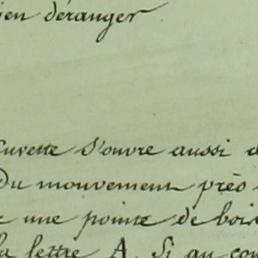 ien déranger
Cuvette s'ouvre aussi
Du mouvement près
une pointe de bois
la lettre A. Si au con